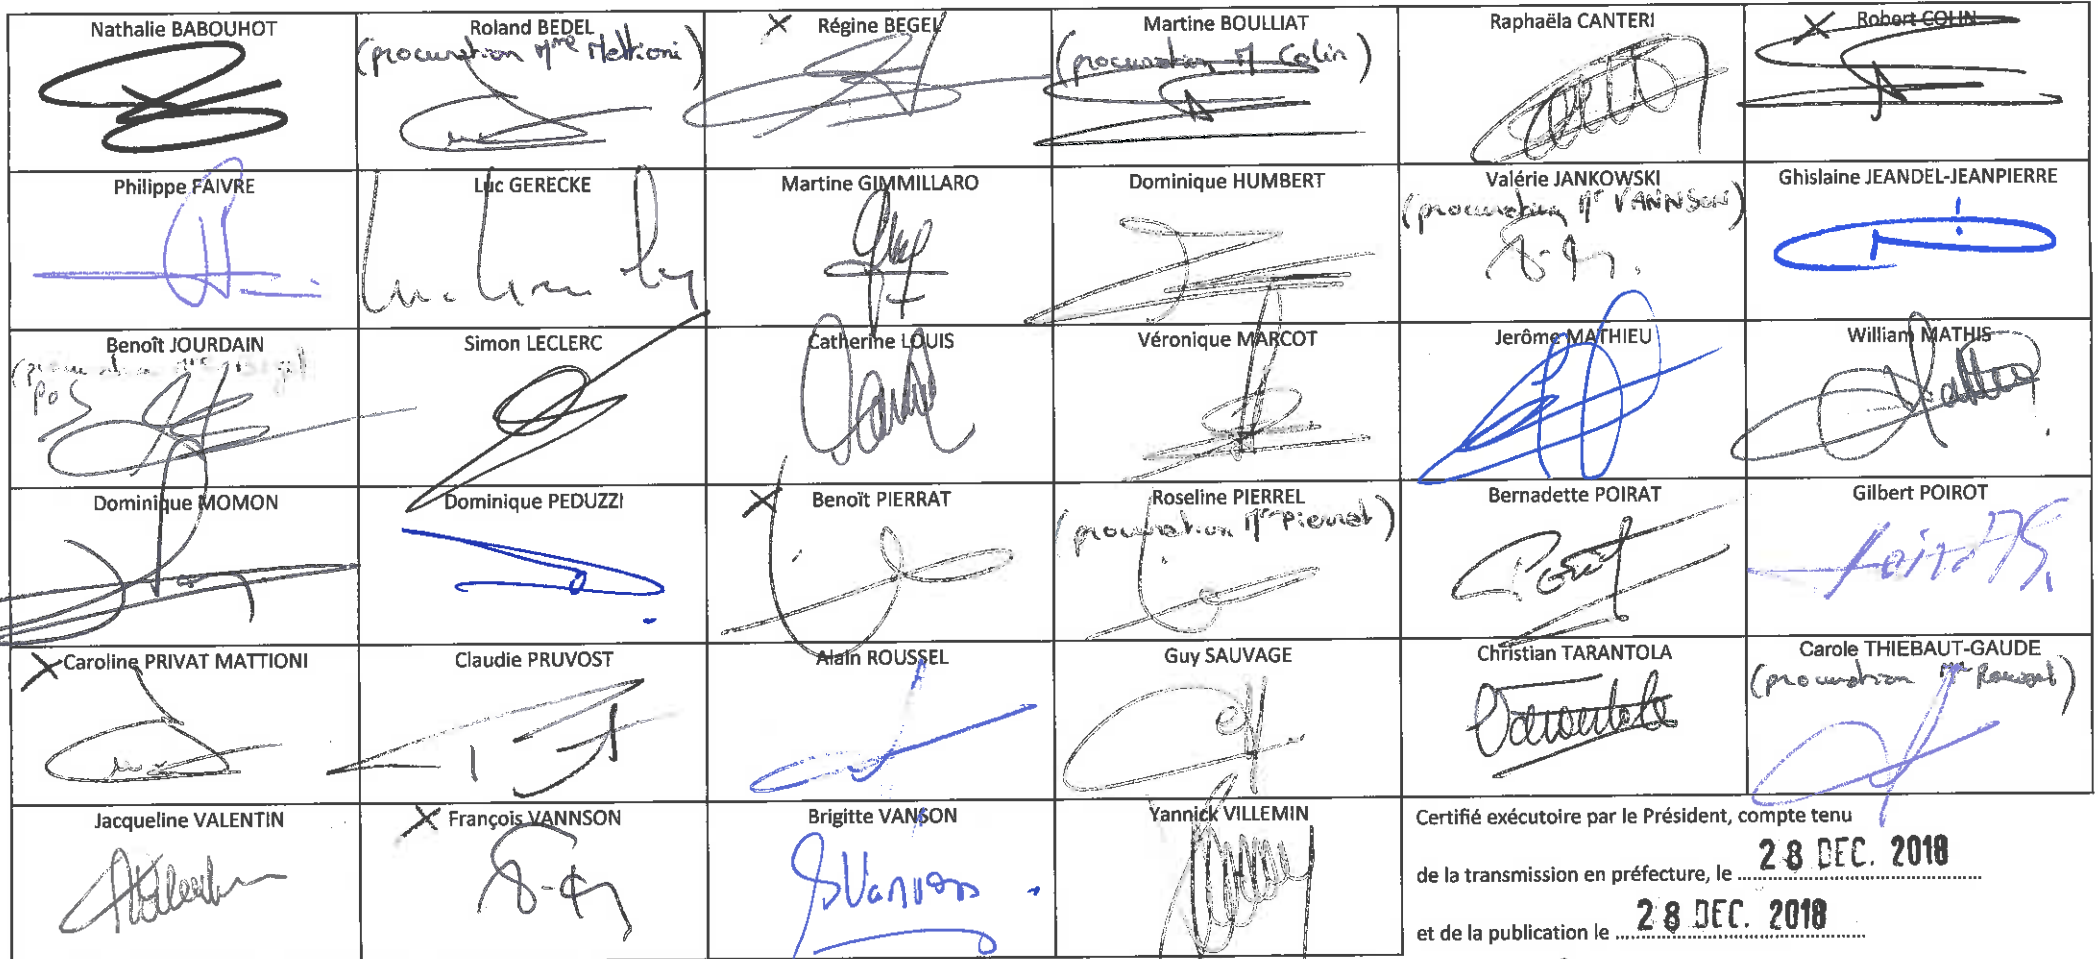 Nathalie BABOUHOT
Roland BEDEL
(procuration Mme Mattioni)
X Régine BEGEL
Martine BOULLIAT
(procuration M Colin)
Raphaëla CANTERI
X Robert COLIN
Philippe FAIVRE
Luc GERECKE
Martine GIMMILLARO
Dominique HUMBERT
Valérie JANKOWSKI
(procuration Mr VANNSON)
Ghislaine JEANDEL-JEANPIERRE
Benoît JOURDAIN
Simon LECLERC
Catherine LOUIS
Véronique MARCOT
Jerôme MATHIEU
William MATHIS
Dominique MOMON
Dominique PEDUZZI
X Benoît PIERRAT
Roseline PIERREL
(procuration Mr Pierrat)
Bernadette POIRAT
Gilbert POIROT
X Caroline PRIVAT MATTIONI
Claudie PRUVOST
Alain ROUSSEL
Guy SAUVAGE
Christian TARANTOLA
Carole THIEBAUT-GAUDE
(procuration
Jacqueline VALENTIN
X François VANNSON
Brigitte VANSON
Yannick VILLEMIN
Certifié exécutoire par le Président, compte tenu
de la transmission en préfecture, le 28 DEC. 2018
et de la publication le 28 DEC. 2018